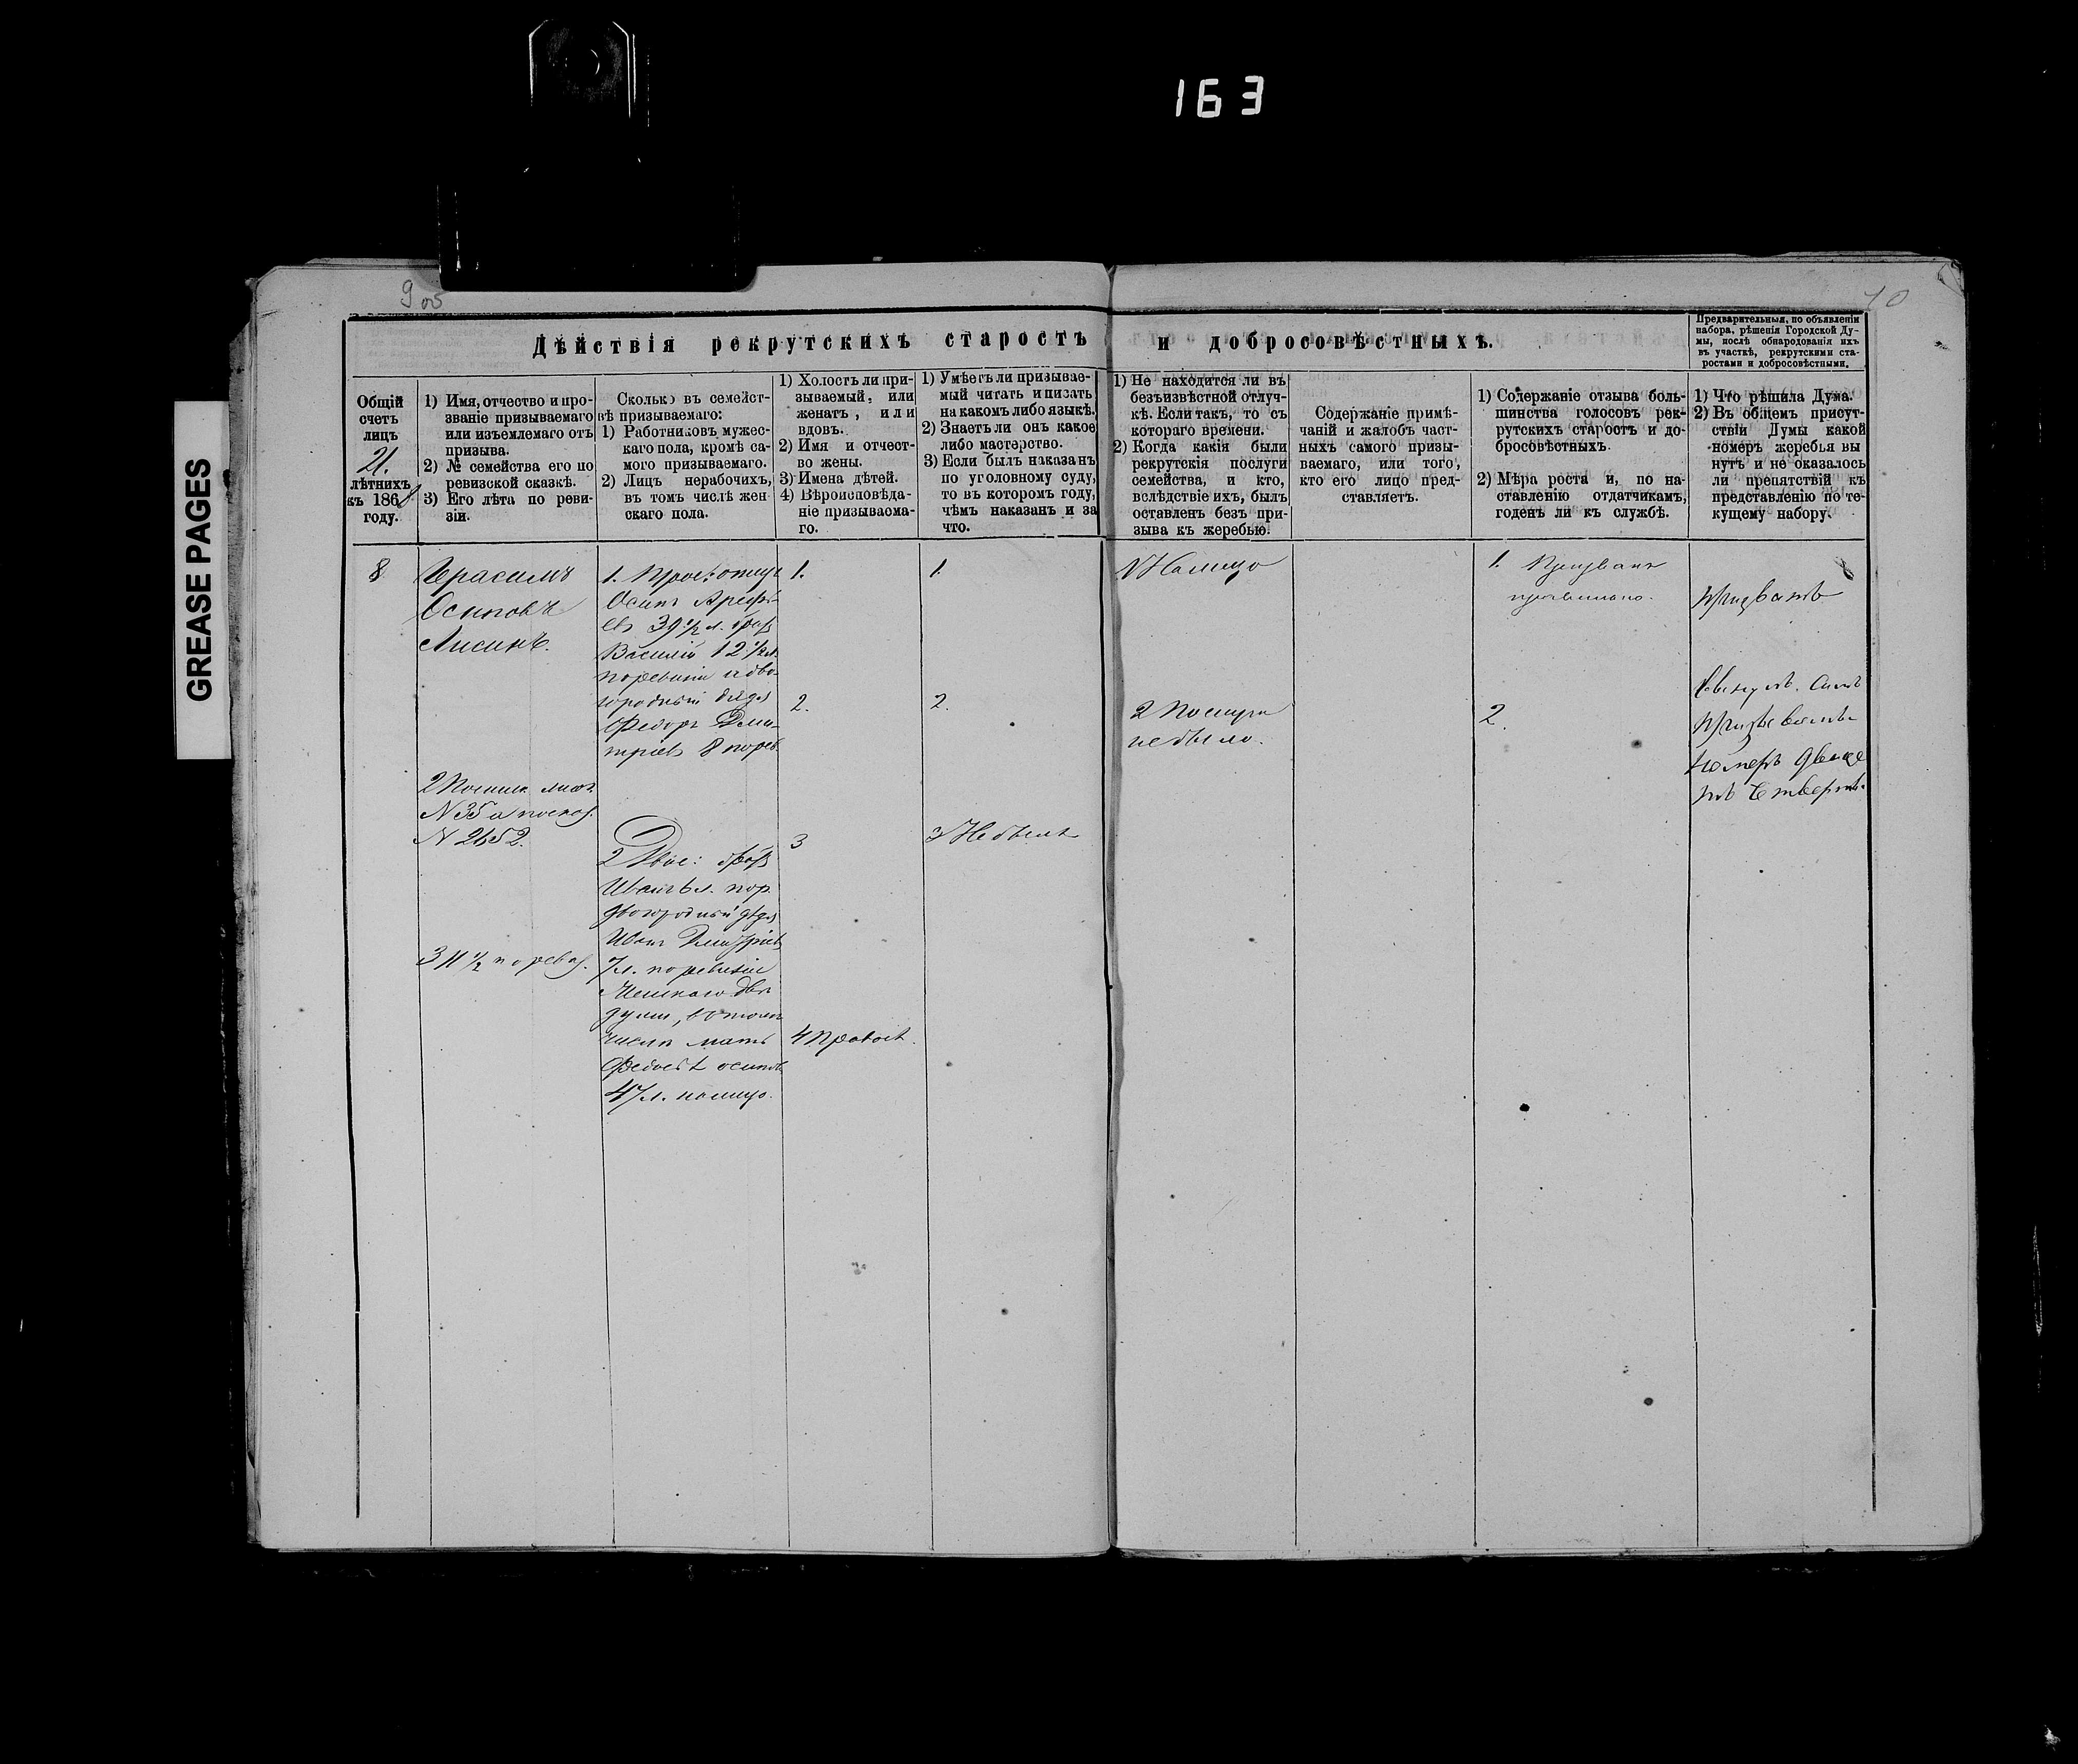 163
GREASE PAGES
9 об
10
Дѣйствія рекрутскихъ старостъ и добросовѣстныхъ.
Предварительныя, по объявленіи
набора, рѣшенія Городской Ду-
мы, послѣ обнародованія ихъ
въ участкѣ, рекрутскими ста-
ростами и добросовѣстными.
Общій
счетъ
лицъ
21.
лѣтнихъ
къ 1868
году.
1) Имя, отчество и про-
званіе призываемаго
или изъемлемаго отъ
призыва.
2) № семейства его по
ревизской сказкѣ.
3) Его лѣта по реви-
зіи.
Сколько въ семейст-
вѣ призываемаго:
1) Работниковъ мужес-
каго пола, кромѣ са-
мого призываемаго.
2) Лицъ нерабочихъ,
въ томъ числѣ жен
скаго пола.
1) Холостъ ли при-
зываемый, или
женатъ, или
вдовъ.
2) Имя и отчест-
во жены.
3) Имена дѣтей.
4) Вѣроисповѣда-
ніе призываема-
го.
1) Умѣетъ ли призывае-
мый читать и писать
на какомъ либо языкѣ.
2) Знаетъ ли онъ какое
либо мастерство.
3) Если былъ наказанъ
по уголовному суду,
то въ которомъ году,
чѣмъ наказанъ и за
что.
1) Не находится ли въ
безъизвѣстной отлуч-
кѣ. Если такъ, то съ
котораго времени.
2) Когда какія были
рекрутскія послуги
семейства, и кто,
вслѣдствіе ихъ, былъ
оставленъ безъ при-
зыва къ жеребью.
Содержаніе примѣ-
чаній и жалобъ част-
ныхъ самого призы-
ваемаго, или того,
кто его лицо пред-
ставляетъ.
1) Содержаніе отзыва боль-
шинства голосовъ рек-
рутскихъ старостъ и до-
бросовѣстныхъ.
2) Мѣра роста и, по на-
ставленію отдатчикамъ,
годенъ ли къ службѣ.
1) Что рѣшила Дума.
2) Въ общемъ присут-
ствіи Думы какой
номеръ жеребья вы
нутъ и не оказалось
ли препятствій къ
представленію по те-
кущему набору.
8
Герасимъ
Осиповъ
Лисинъ.
№ 35 а
№ 2652.
3 11 ½ по ревиз.
1. Трое: отецъ
Осипъ Арефь-
евъ 39 ½ л. братъ
Василій 12 ½ л.
по ревизіи и дво-
юродный дядя
Федоръ Дми-
тріевъ 8 по рев.
2 Двое: братъ
Иванъ 6 л. по р.
двоюродный дядя
Иванъ Дмитріевъ
7 л. по ревизіи
Женскаго двѣ
души, въ томъ
числѣ мать
Федосья Осипов
47 л. налицо.
1.
2.
3
4 Правос.
1.
2.
3 Не былъ
1 Налицо
2 Послуги
не было.
1. Призванъ
правильно.
2.
призвать
Вынулъ Самъ
призываемый
номеръ двадца
ть четверт.